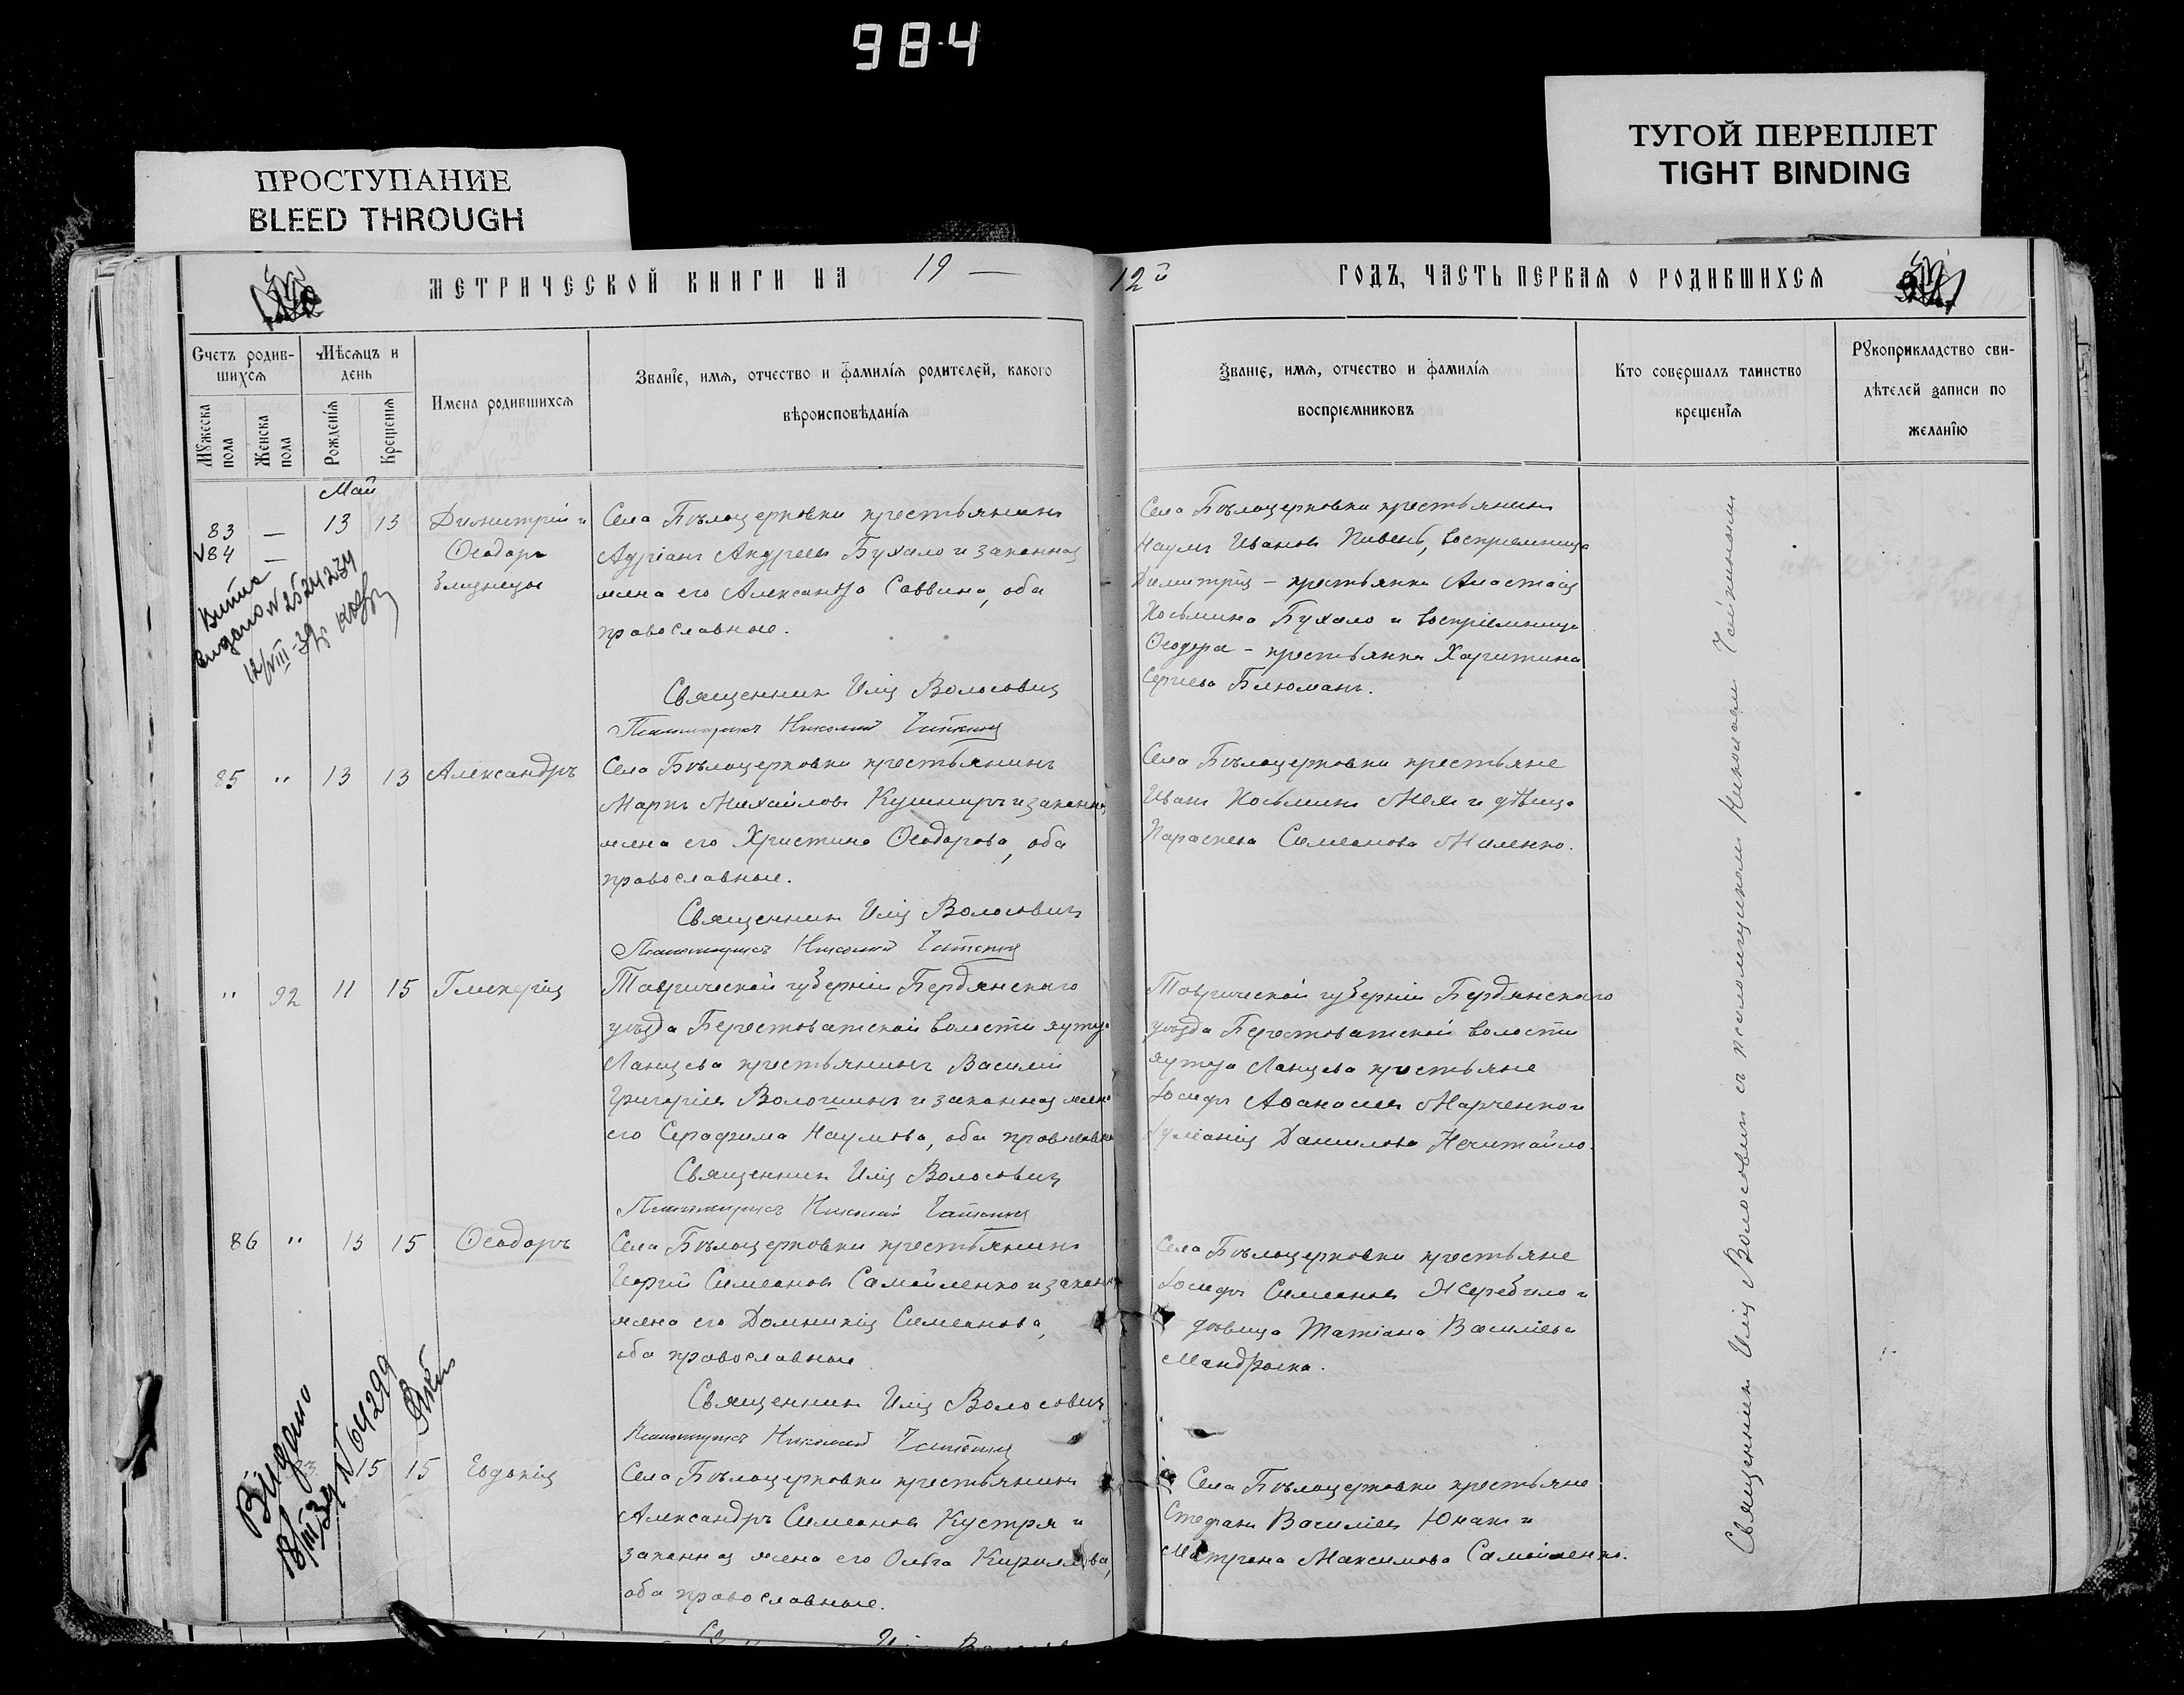 984
ПРОСТУПАНИЕ
BLEED THROUGH
ТУГОЙ ПЕРЕПЛЕТ
TIGHT BINDING
МЕТРИЧЕСКОЙ КНИГИ НА 19 —
12й ГОДЪ, ЧАСТЬ ПЕРВАЯ О РОДИВШИХСЯ
Счетъ родив-
шихся
Мѣсяцъ и
день
Мужеска
пола
Женска
пола
Рожденія
Крещенія
Имена родившихся
Званіе, имя, отчество и фамилія родителей, какого
вѣроисповѣданія
Званіе, имя, отчество и фамилія
воспріемниковъ
Кто совершалъ таинство
крещенія
Рукоприкладство сви-
дѣтелей записи по
желанію
Май
83 — 13 13 Димитрій и
√84 — Ѳеодоръ
близнецы
Витяг
видано № 2524234
12/VIII-39
Села Бѣлоцерковки крестьянинъ
Адріанъ Андреевъ Бухало и законная
жена его Александра Саввина, оба
православные.
Священникъ Илія Волосовичъ
Псаломщикъ Николай
Села Бѣлоцерковки крестьянинъ
Наумъ Ивановъ Пивень, воспріемница
Димитрія – крестьянка Анастасія
Косьмина Бухало и воспріемница
Ѳеодора – крестьянка Харитина
Сергіева Блюманъ.
85 " 13 13 Александръ
Села Бѣлоцерковки крестьянинъ
Маркъ Михайловъ Кушниръ и законн.
жена его Христина Ѳеодорова, оба
православные.
Священникъ Илія Волосовичъ
Псаломщикъ Николай
Села Бѣлоцерковки крестьяне
Иванъ Косьминъ и дѣвица
Параскева Симеонова Миленко.
" 92 11 15 Гликерія
Таврической губерніи Бердянскаго
уѣзда Берестоватской волости хутора
Ланцева крестьянинъ Василій
Григоріевъ Волошинъ и законная жена
его Серафима Наумова, оба православн.
Священникъ Илія Волосовичъ
Псаломщикъ Николай
Таврической губерніи Бердянскаго
уѣзда Берестоватской волости
хутора Ланцева крестьяне
Іосифъ Аѳанасіевъ Марченко и
Іуліанія Даниилова Нечитайло.
86 " 13 15 Ѳеодоръ
Села Бѣлоцерковки крестьянинъ
Георгій Симеоновъ Самойленко и законн.
жена его Домникія Симеонова,
оба православные
Священникъ Илія Волосовичъ
Псаломщикъ Николай
Села Бѣлоцерковки крестьяне
Іосифъ Симеоновъ Жеребило и
дѣвица Татіана Василіева
Мандрыка.
Видано
18/III 39 № 64299
93 15 15 Евдокія
Села Бѣлоцерковки крестьянинъ
Александръ Симеоновъ Кустря и
законная жена его Ольга Кириллова,
оба православные.
Села Бѣлоцерковки крестьяне
Стефанъ Василіевъ Юнакъ и
Матрона Максимова Самойленко.
Священникъ Илія Волосовичъ съ псаломщикомъ Николаемъ